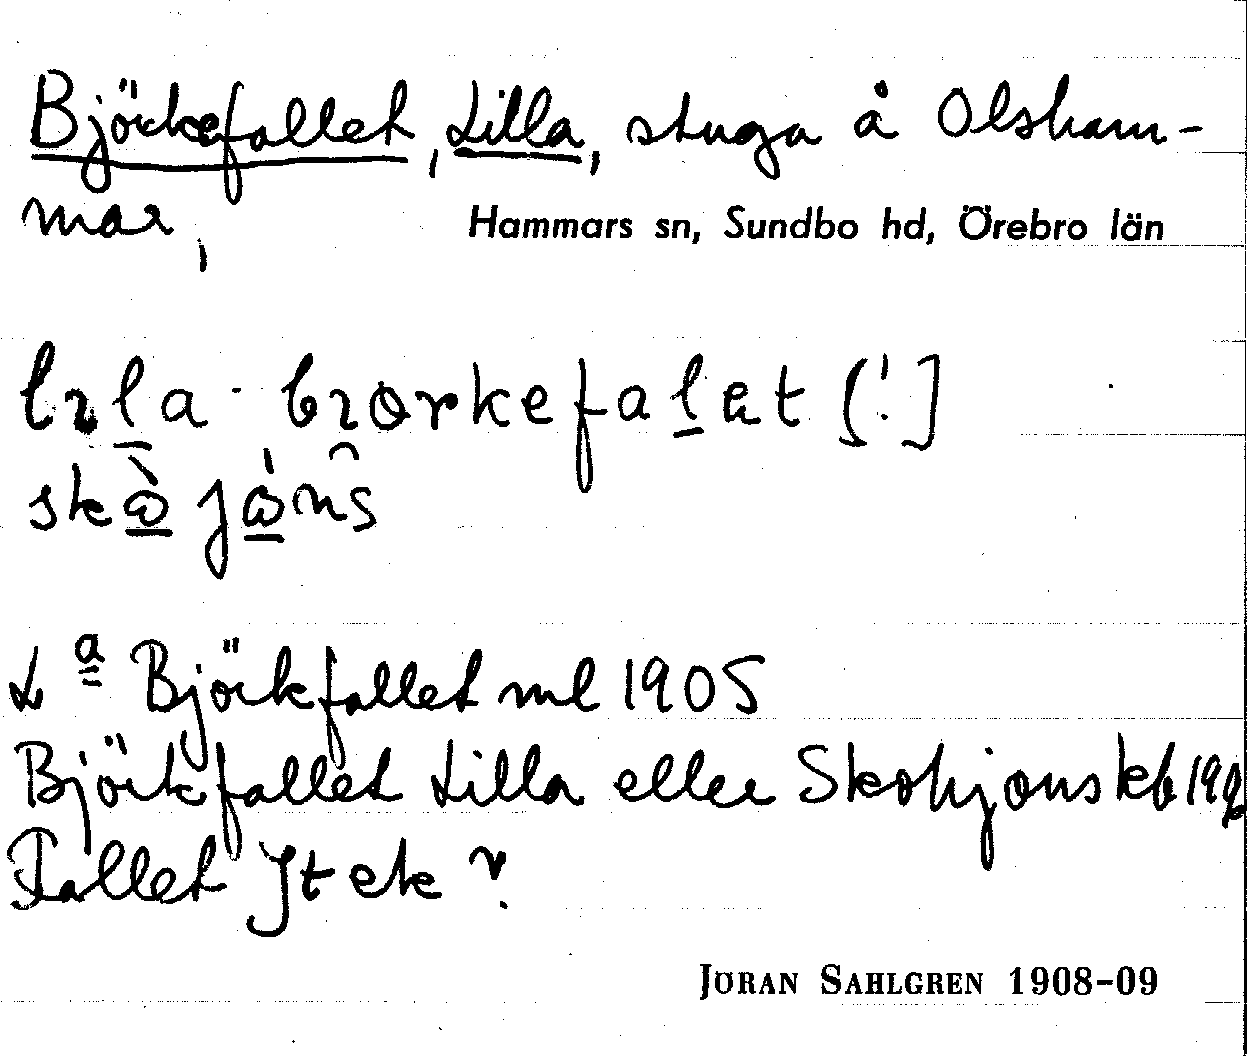 Björkefallet, Lilla, stuga å Olsham-
mar, Hammars sn, Sundbo hd, Örebro län
lɩla bɩorkefalet [!]
skò jòns
Lª Björkfallet ml 1905
Björkfallet Lilla eller Skohjons kb
Fallet Jt ek ?
JÖRAN SAHLGREN 1908-09